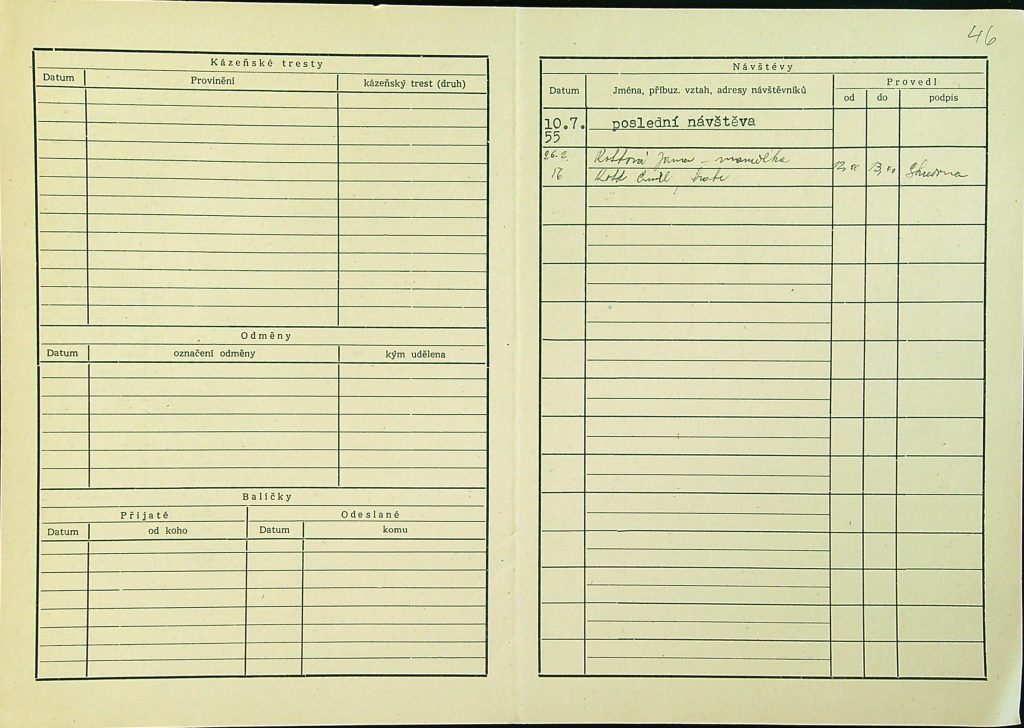 46
Kázeňské tresty
Datum Provinění kázeňský trest (druh)
Odměny
Datum označení odměny kým udělena
Balíčky
Přijaté Odeslané
Datum od koho Datum komu
Návštěvy
Datum Jména, příbuz. vztah, adresy návštěvníků Provedl
od do podpis
10.7. poslední návštěva
55
manželka